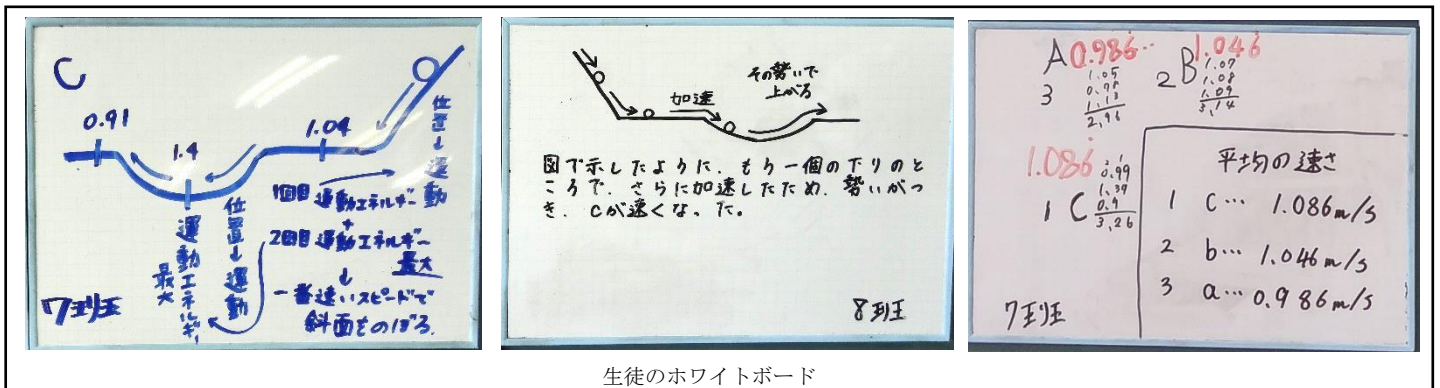 C
0.91
1.4
1.04
位置→運動
位置→運動
運動エネルギー
最大
1回目 運動エネルギー
+
2回目 運動エネルギー
最大
↓
一番速いスピードで
斜面をのぼる.
7班
加速
その勢いで
上がる
図で示したように、もう一個の下りのと
ころで、さらに加速したため、勢いがつ
き、Cが速くなった。
8班
A 0.986‥
3
1.05
0.78
1.13
2.96
2 B 1.046
1.07
1.08
1.09
3.14
1.086
1 C
0.99
1.39
0.9
3.26
平均の速さ
1 c… 1.086m/s
2 b… 1.046m/s
3 a… 0.986m/s
7班
生徒のホワイトボード